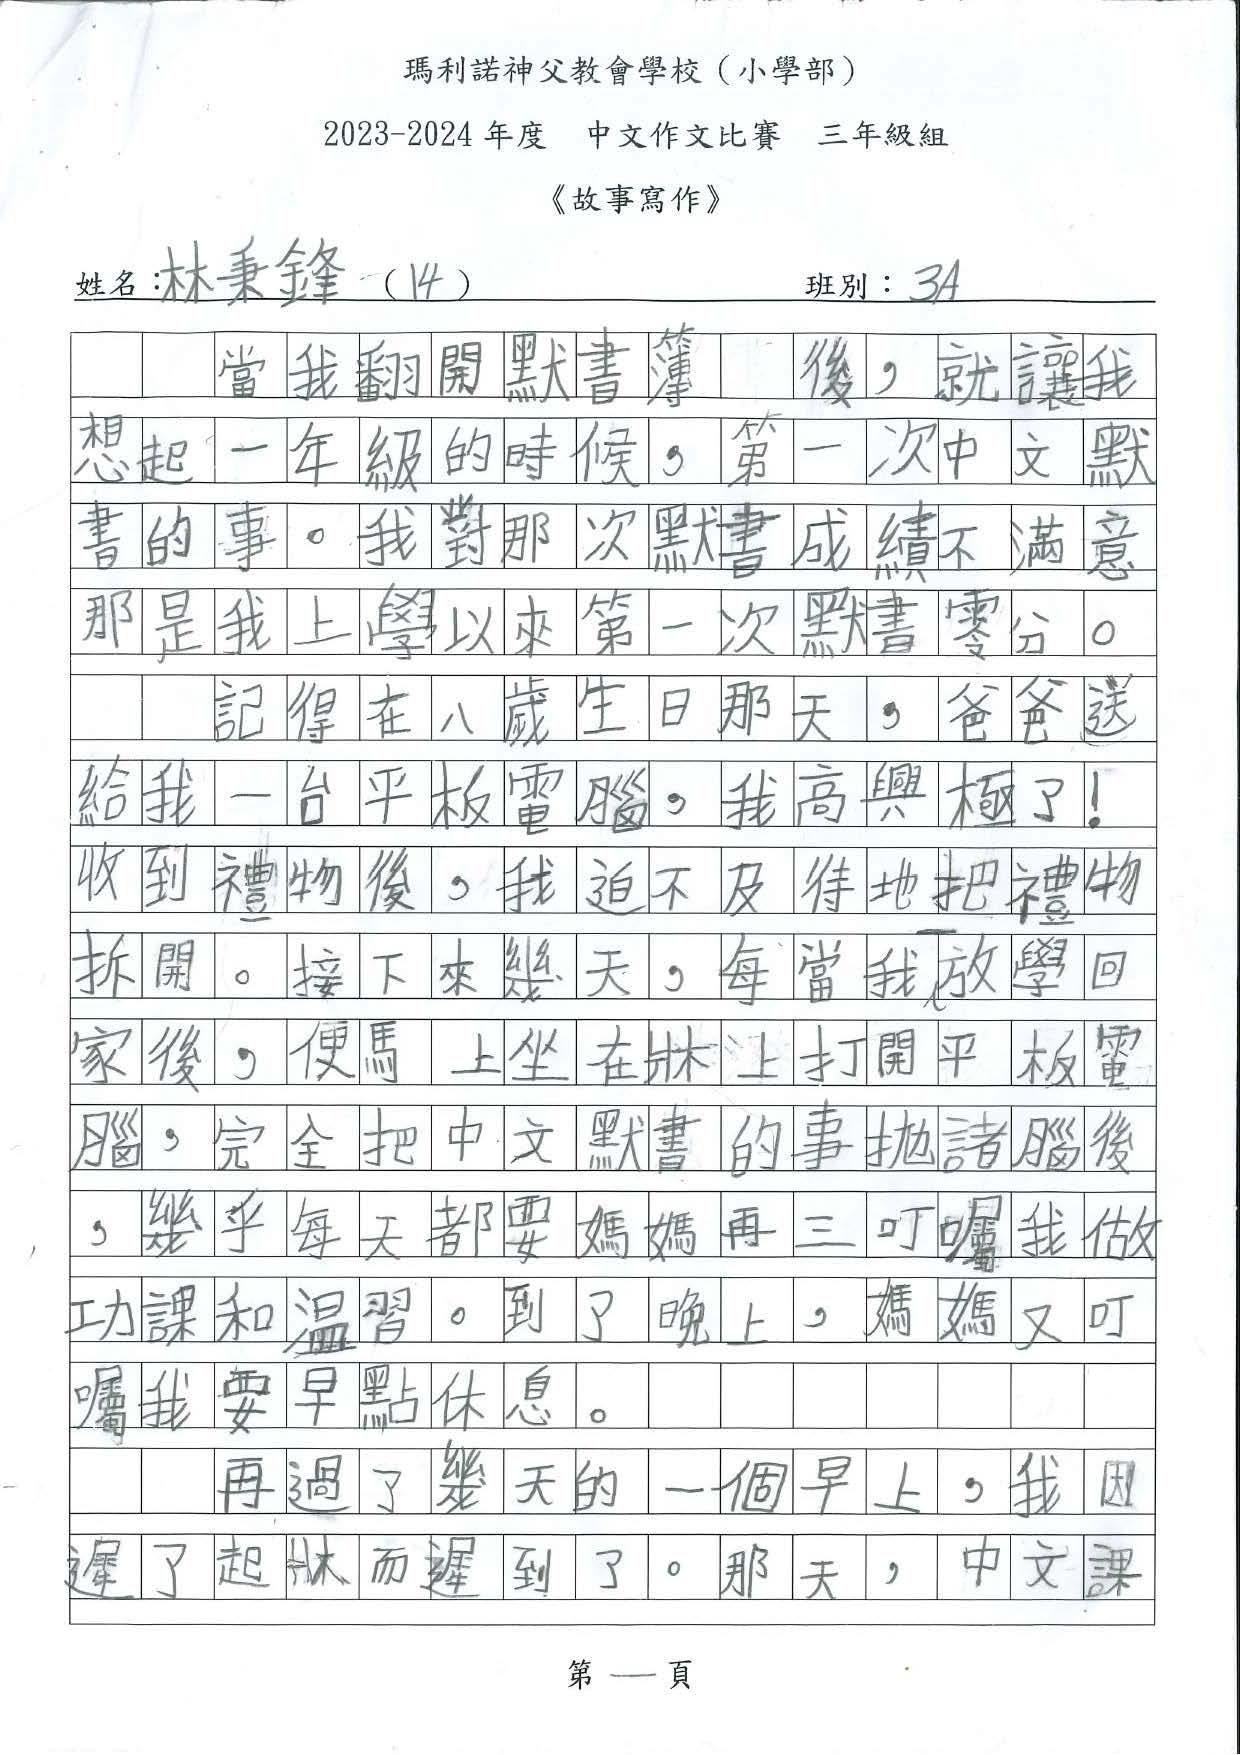 瑪利諾神父教會學校（小學部）
2023-2024 年度　中文作文比賽　三年級組
《故事寫作》
姓名：林秉鋒（14）　班別：3A
當我翻開默書簿　後，就讓我
想起一年級的時候，第一次中文默
書的事。我對那次默書成績不滿意
那是我上學以來第一次默書零分。
記得在八歲生日那天，爸爸送
給我一台平板電腦，我高興極了！
收到禮物後，我迫不及待地把禮物
拆開。接下來幾天，每當我放學回
家後，便馬上坐在牀上打開平板電
腦，完全把中文默書的事拋諸腦後
，幾乎每天都要媽媽再三叮囑我做
功課和溫習。到了晚上，媽媽又叮
囑我要早點休息。
再過了幾天的一個早上，我因
遲了起牀而遲到了。那天，中文課
第一頁